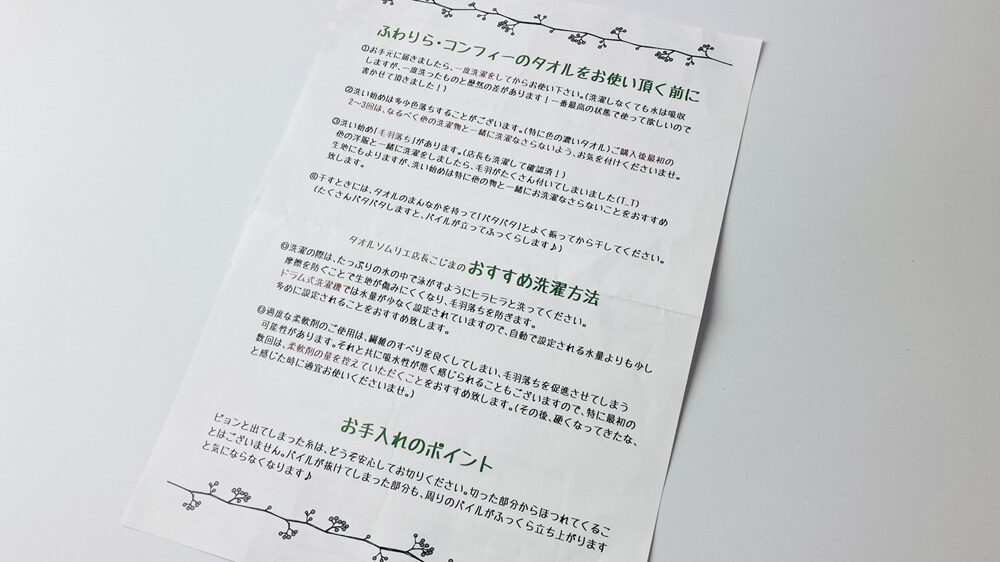 ふわりら・コンフィーのタオルをお使い頂く前に
①お手元に届きましたら、一度洗濯をしてからお使い下さい。(洗濯しなくても水は吸収
しますが、一度洗ったものと歴然の差があります！一番最高の状態で使って欲しいので
書かせて頂きました！)
②洗い始めは多少色落ちすることがございます。(特に色の濃いタオル)ご購入後最初の
2〜3回は、なるべく他の洗濯物と一緒に洗濯なさらないよう、お気を付けくださいませ。
③洗い始め「毛羽落ち」があります。(店長も洗濯して確認済！)
他の洋服と一緒に洗濯をしましたら、毛羽がたくさん付いてしまいました(T_T)
生地にもよりますが、洗い始めは特に他の物と一緒にお洗濯なさらないことをおすすめ
致します。
④干すときには、タオルのまんなかを持って「パタパタ」とよく振ってから干してください。
(たくさんパタパタしますと、パイルが立ってふっくらします♪)
タオルソムリエ店長こじまのおすすめ洗濯方法
◎洗濯の際は、たっぷりの水の中で泳がすようにヒラヒラと洗ってください。
摩擦を防ぐことで生地が傷みにくくなり、毛羽落ちを防ぎます。
ドラム式洗濯機では水量が少なく設定されていますので、自動で設定される水量よりも少し
多めに設定されることをおすすめ致します。
◎過度な柔軟剤のご使用は、繊維のすべりを良くしてしまい、毛羽落ちを促進させてしまう
可能性があります。それと共に吸水性が悪く感じられることもございますので、特に最初の
数回は、柔軟剤の量を控えていただくことをおすすめ致します。(その後、硬くなってきたな、
と感じた時に適宜お使いくださいませ。)
お手入れのポイント
ピョンと出てしまった糸は、どうぞ安心してお切りください。切った部分からほつれてくるこ
とはございません。パイルが抜けてしまった部分も、周りのパイルがふっくら立ち上がります
と気にならなくなります♪